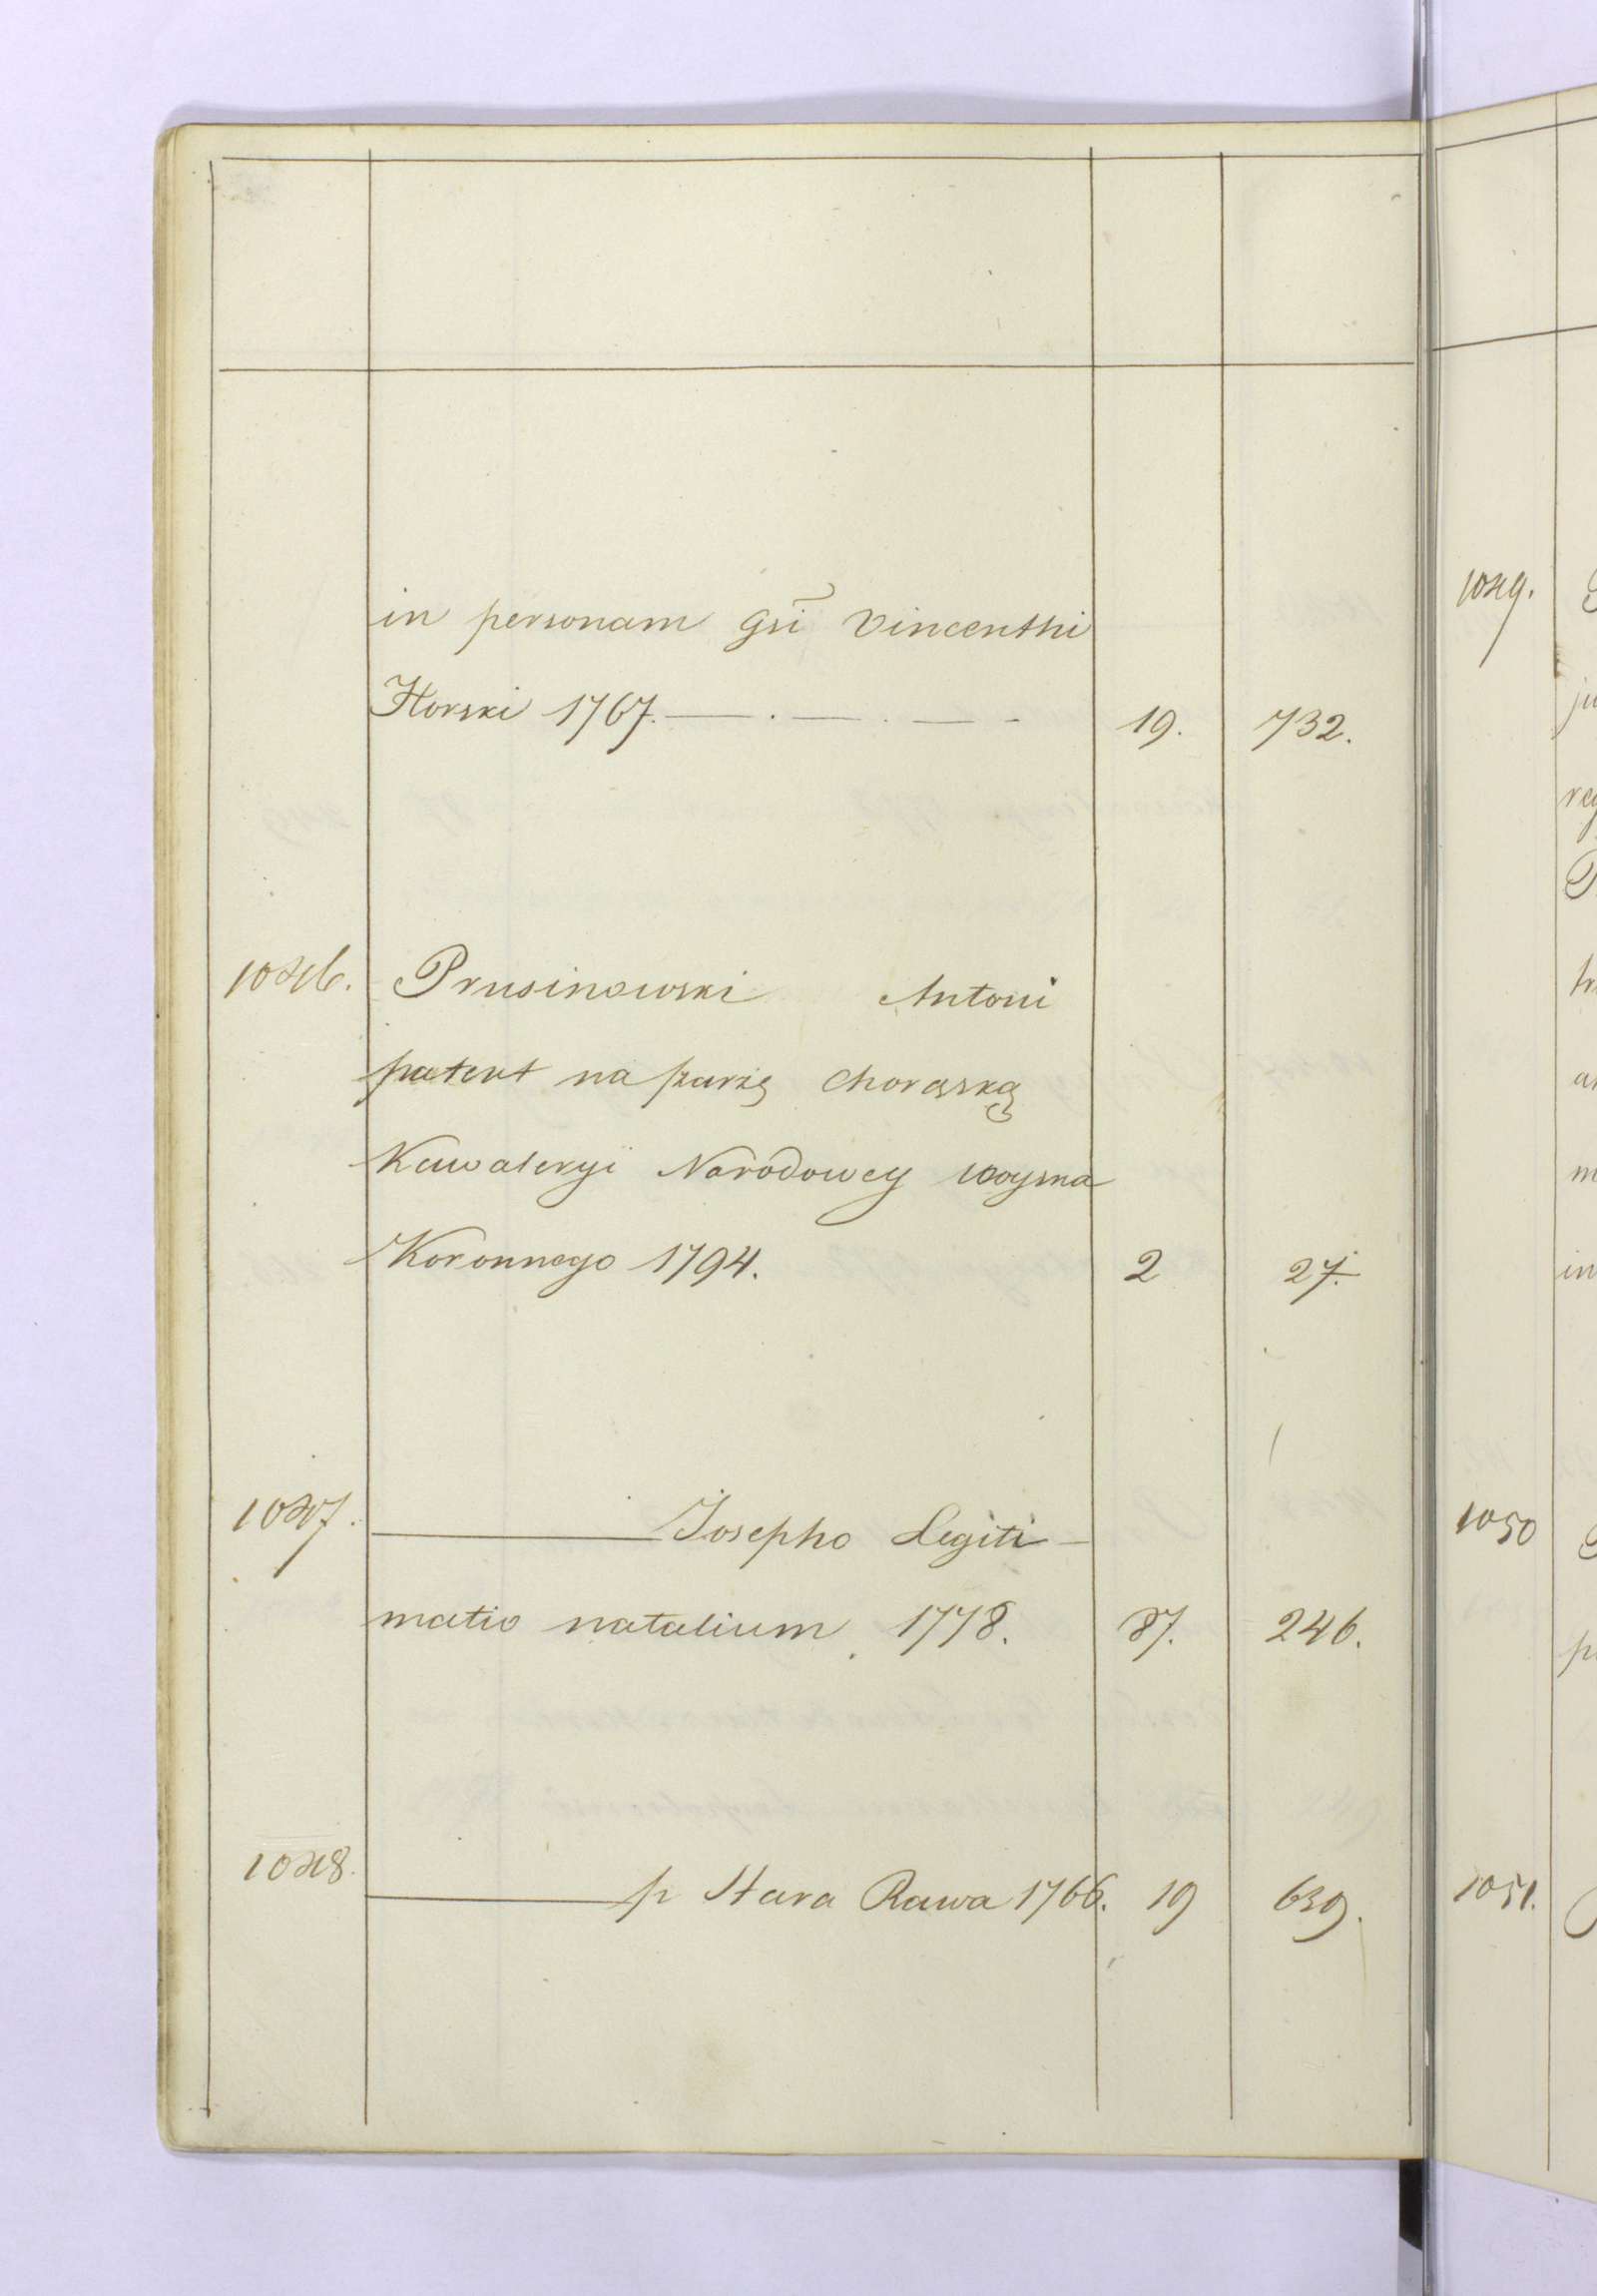 in personam Gsi Vincenthi
Horski 1767. — . — . — - 19. 732.
1046. Prusinowski Antoni
patent na parzę chorąską
Kawaleryi Narodowey woyska
Koronnego 1794. 2 27.
1047. ——— Josepho Legiti-
matio natalium. 1778. 87. 246.
1048. ——— p Stara Rawa 1766. 19 639.
1049.
ju
reg
m
in
1050
1051.